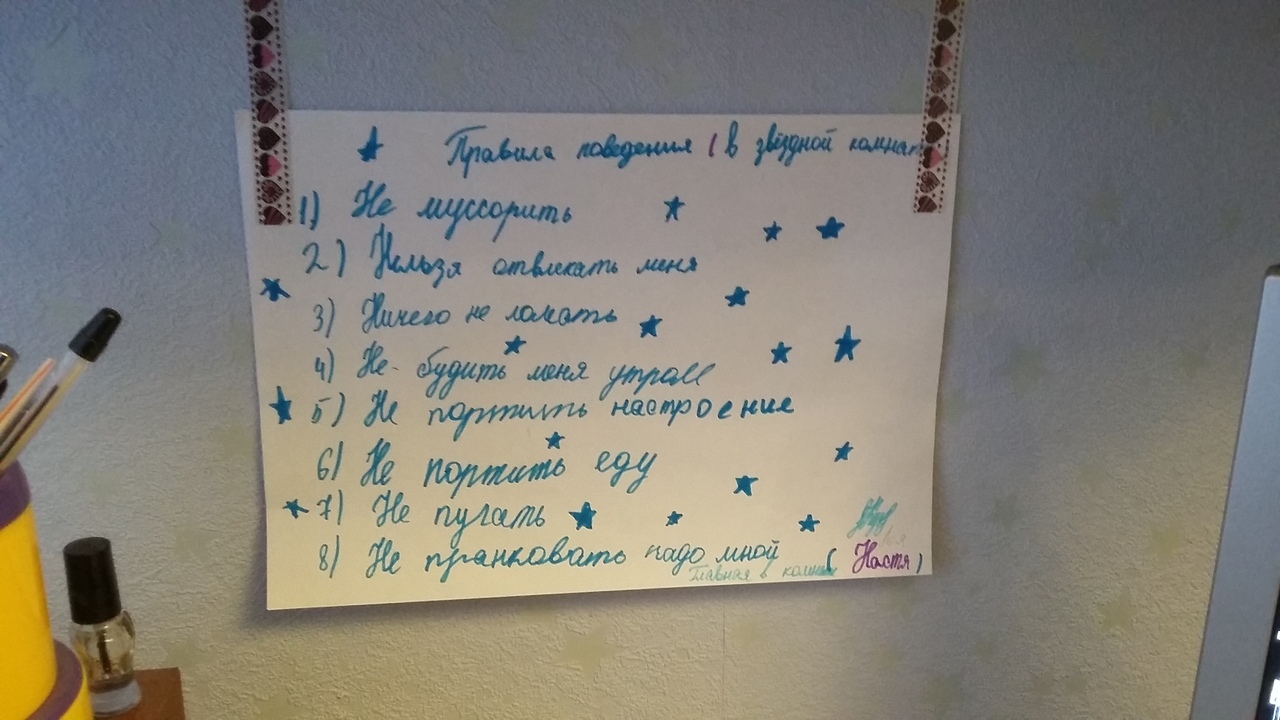 Правила поведения (в звёздной комнат
1) Не муссорить
2) Нельзя отвлекать меня
3) Ничего не ломать
4) Не будить меня утром
5) Не портить настроение
6) Не портить еду
7) Не пугать
8) Не пранковать надо мной
Главная в комнате (Настя)